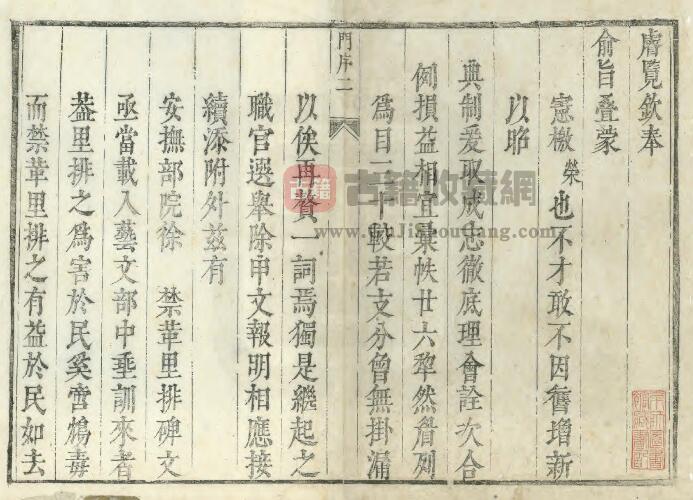 膚覽欽奉
俞旨叠蒙
憲檄榮也不才敢不因舊增新
以昭
典制爰取成忠徹底理會詮次合
例損益相宜彙帙廿六犂然眉列
爲目二十較若支分曾無掛漏
門序二
以俟再贅一詞焉獨是繼起之
職官選舉除申文報明相應接
續添附外茲有
安撫部院徐 禁革里排碑文
亟當載入藝文部中垂訓來者
葢里排之爲害於民奚啻鴆毒
而禁革里排之有益於民如去
古籍
古籍收藏網
www.gujishoucang.com